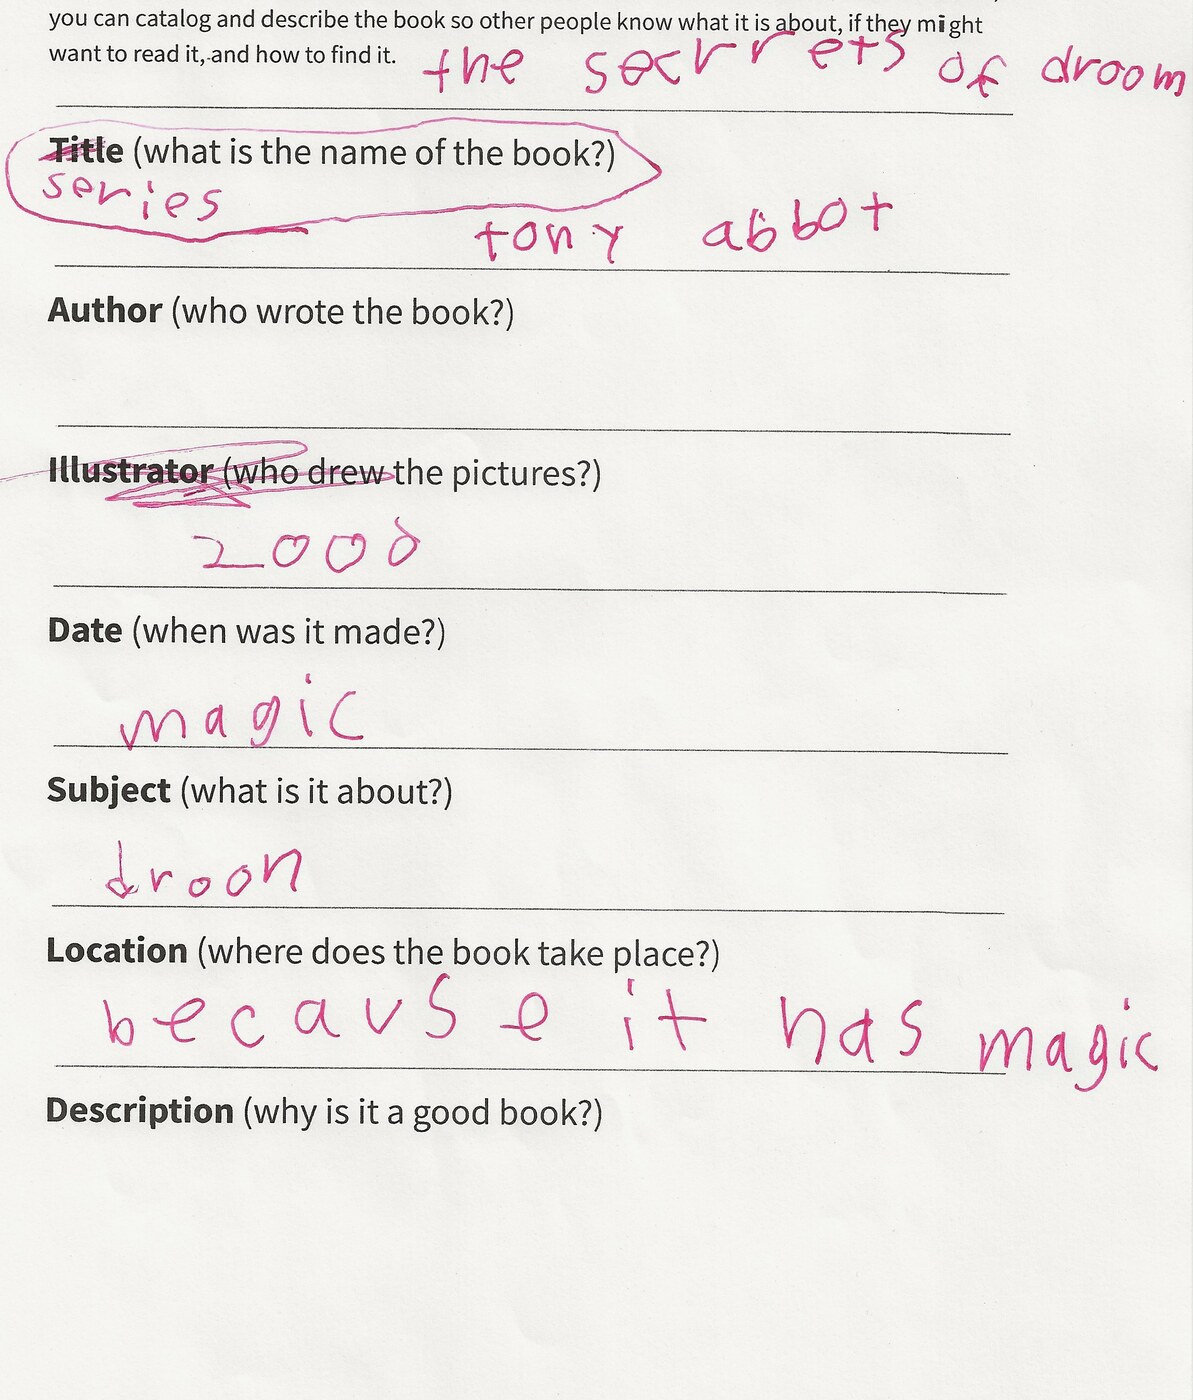 you can catalog and describe the book so other people know what it is about, if they might
want to read it, and how to find it.
the secrrets of droom
Title (what is the name of the book?)
series
tony abbot
Author (who wrote the book?)
Illustrator (who drew the pictures?)
2000
Date (when was it made?)
magic
Subject (what is it about?)
droon
Location (where does the book take place?)
because it has magic
Description (why is it a good book?)